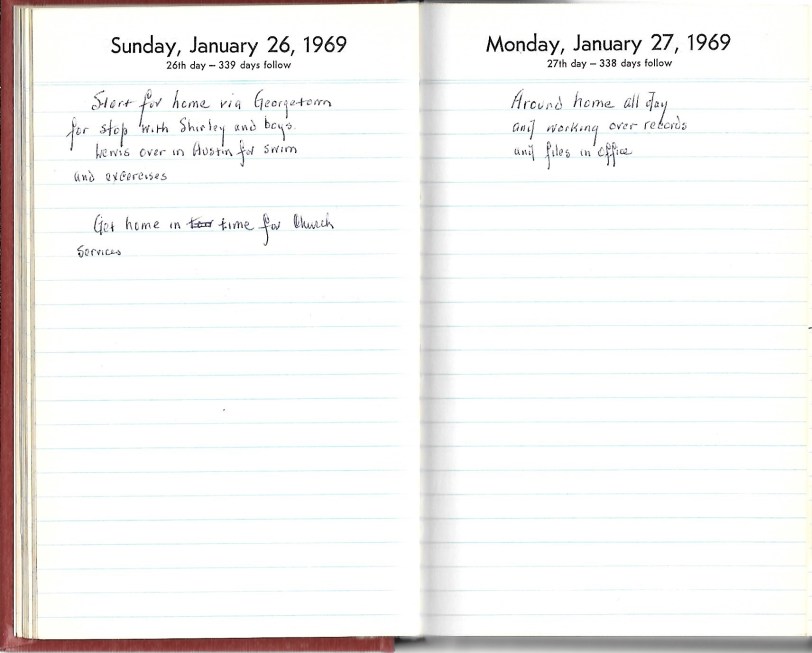 Sunday, January 26, 1969
26th day – 339 days follow
Start for home via Georgetown
for stop with Shirley and boys.
Lewis over in Austin for swim
and excercises
Get home in time for Church
Services
Monday, January 27, 1969
27th day – 338 days follow
Around home all day
and working over records
and files in office